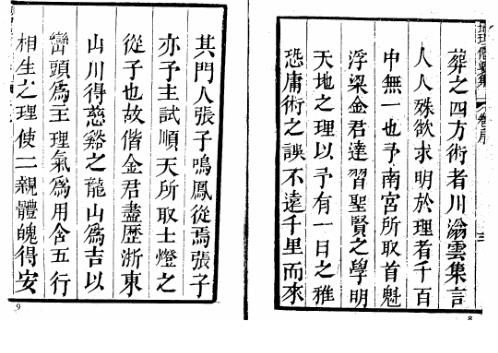 葬之四方術者川滃雲集言
人人殊欲求明於理者千百
中無一也予南宮所取首魁
浮梁金君達習聖賢之學明
天地之理以予有一日之雅
恐庸術之誤不遠千里而來
8
其門人張子鳴鳳從焉張子
亦予主試順天所取士燈之
從子也故偕金君盡歷浙東
山川得慈谿之龍山爲吉以
巒頭爲王理氣爲用含五行
相生之理使二親體魄得安
9